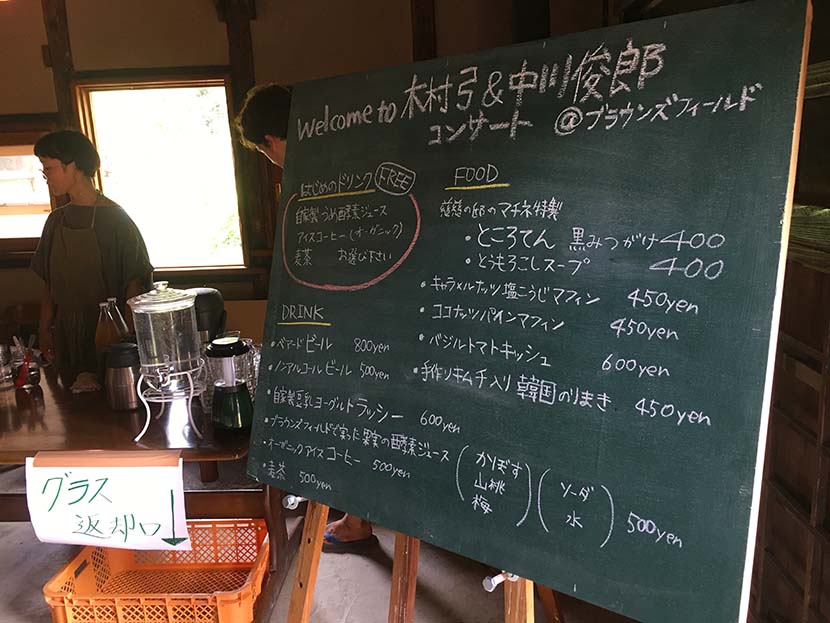 Welcome to 木村弓&中川俊郎
コンサート @ブラウンズフィールド
はじめのドリンク FREE
自家製うめ酵素ジュース
アイスコーヒー(オーガニック)
麦茶 お選び下さい
DRINK
・ベアードビール 800yen
・ノンアルコールビール 500yen
・自家製豆乳ヨーグルトラッシー 600yen
・ブラウンズフィールドで実った果実の酵素ジュース
(かぼす 山桃 梅) (ソーダ 水) 500yen
・オーガニックアイスコーヒー 500yen
・麦茶 500yen
FOOD
慈慈の邸のマチネ特製
・ところてん 黒みつがけ 400
・とうもろこしスープ 400
・キャラメルナッツ塩こうじマフィン 450yen
・ココナッツパインマフィン 450yen
・バジルトマトキッシュ 600yen
・手作りキムチ入り韓国のりまき 450yen
グラス
返却口↓